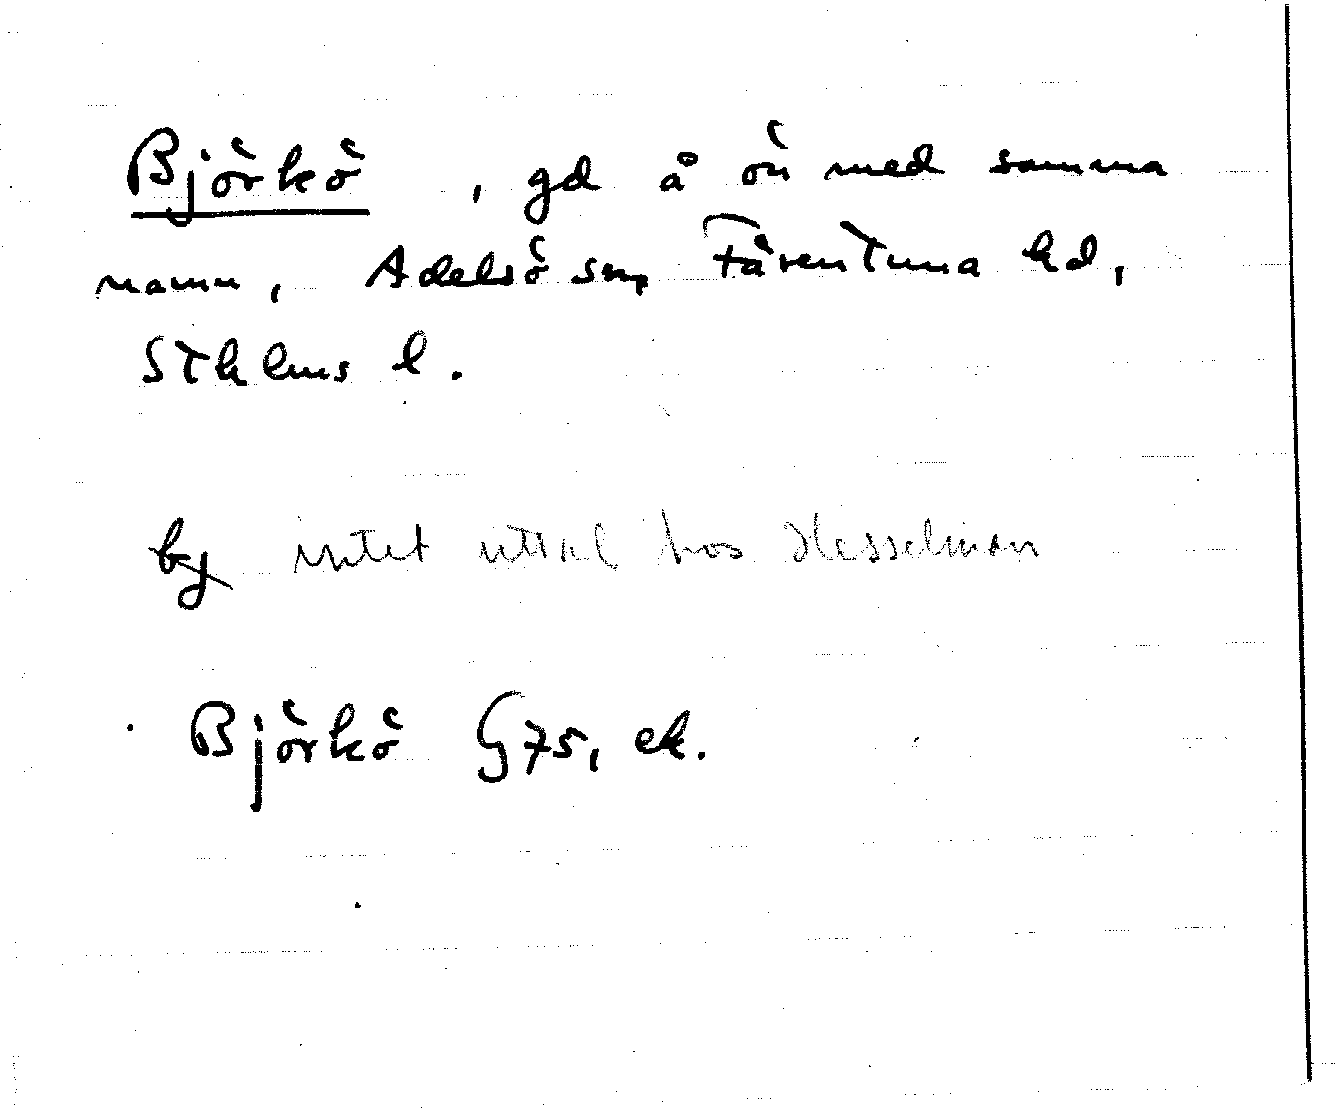 Björkö, gd å ön med samma
namn, Adelsö sn, Färentuna hd,
Sthlms l.
by intet uttal hos Hesselman
Björkö G75, ek.